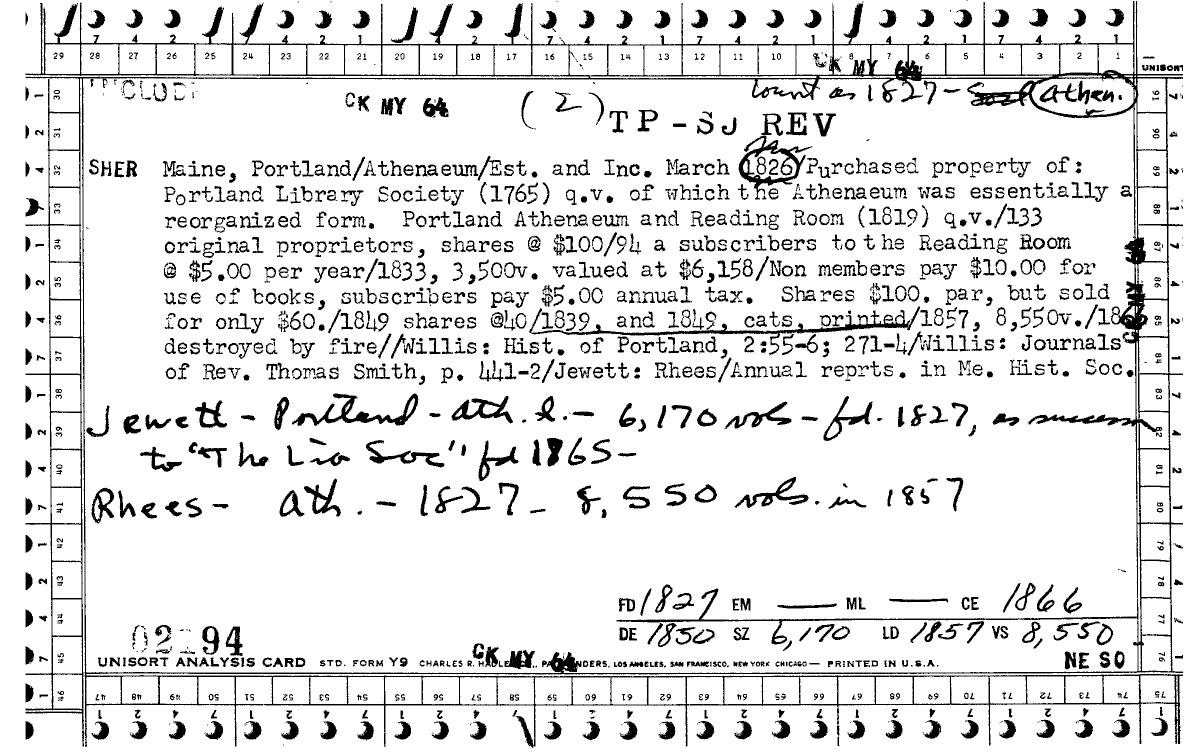 29 28 27 26 25 24 23 22 21 20 19 18 17 16 15 14 13 12 11 10 9 8 7 6 5 4 3 2 1
UNISORT
INCLUDE CK MY 64 CK MY 64
Count as 1827 - Athen.
(2) TP-SJ REV
SHER Maine, Portland/Athenaeum/Est. and Inc. March 1826/Purchased property of:
Portland Library Society (1765) q.v. of which the Athenaeum was essentially a
reorganized form. Portland Athenaeum and Reading Room (1819) q.v./133
original proprietors, shares @ $100/94 a subscribers to the Reading Room
@ $5.00 per year/1833, 3,500v. valued at $6,158/Non members pay $10.00 for
use of books, subscribers pay $5.00 annual tax. Shares $100. par, but sold
for only $60./1849 shares @40/1839, and 1849, cats, printed/1857, 8,550v./1866
destroyed by fire//Willis: Hist. of Portland, 2:55-6; 271-4/Willis: Journals
of Rev. Thomas Smith, p. 441-2/Jewett: Rhees/Annual reprts. in Me. Hist. Soc.
Jewett - Portland - Ath. l. - 6,170 vols - fd. 1827, as successor
to "The Lib Soc" fd 1865 -
Rhees - Ath. - 1827 - 8,550 vols. in 1857
FD 1827 EM — ML — CE 1866
DE 1850 SZ 6,170 LD 1857 VS 8,550
02194
CK MY 64
NE SO
UNISORT ANALYSIS CARD STD. FORM Y9 CHARLES R. LOS ANGELES, SAN FRANCISCO, NEW YORK CHICAGO — PRINTED IN U.S.A.
47 48 49 50 51 52 53 54 55 56 57 58 59 60 61 62 63 64 65 66 67 68 69 70 71 72 73 74 75